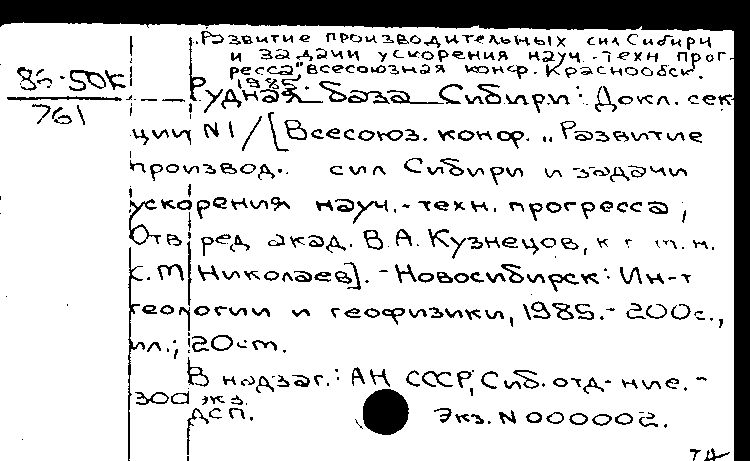 „Развитие производительных сил Сибири
и задачи ускорения науч.-техн. прог-
ресса", всесоюзная конф. Краснообск.
1985.
85-50К
761
Рудная база Сибири: Докл. сек-
ции N1/[Всесоюз. конф. „Развитие
производ. сил Сибири и задачи
ускорения науч.-техн. прогресса;
Отв. ред акад. В.А. Кузнецов, к г.-м.н.
С.М. Николаев]. - Новосибирск: Ин-т
геологии и геофизики, 1985. - 200с.,
ил.; 20см.
В надзаг.: АН СССР, Сиб. отд-ние. -
300 экз.
ДСП.
Экз. N 000002.